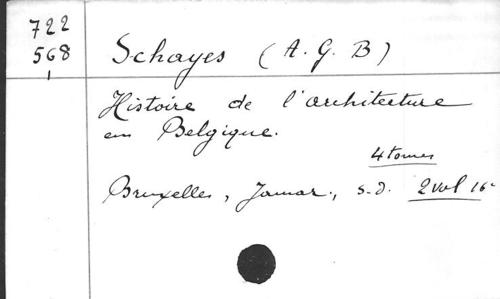 722
568
Schayes (A. G. B)
Histoire de l'architecture
en Belgique.
4 tomes
Bruxelles, Jamar., s.d. 2 vol 16°